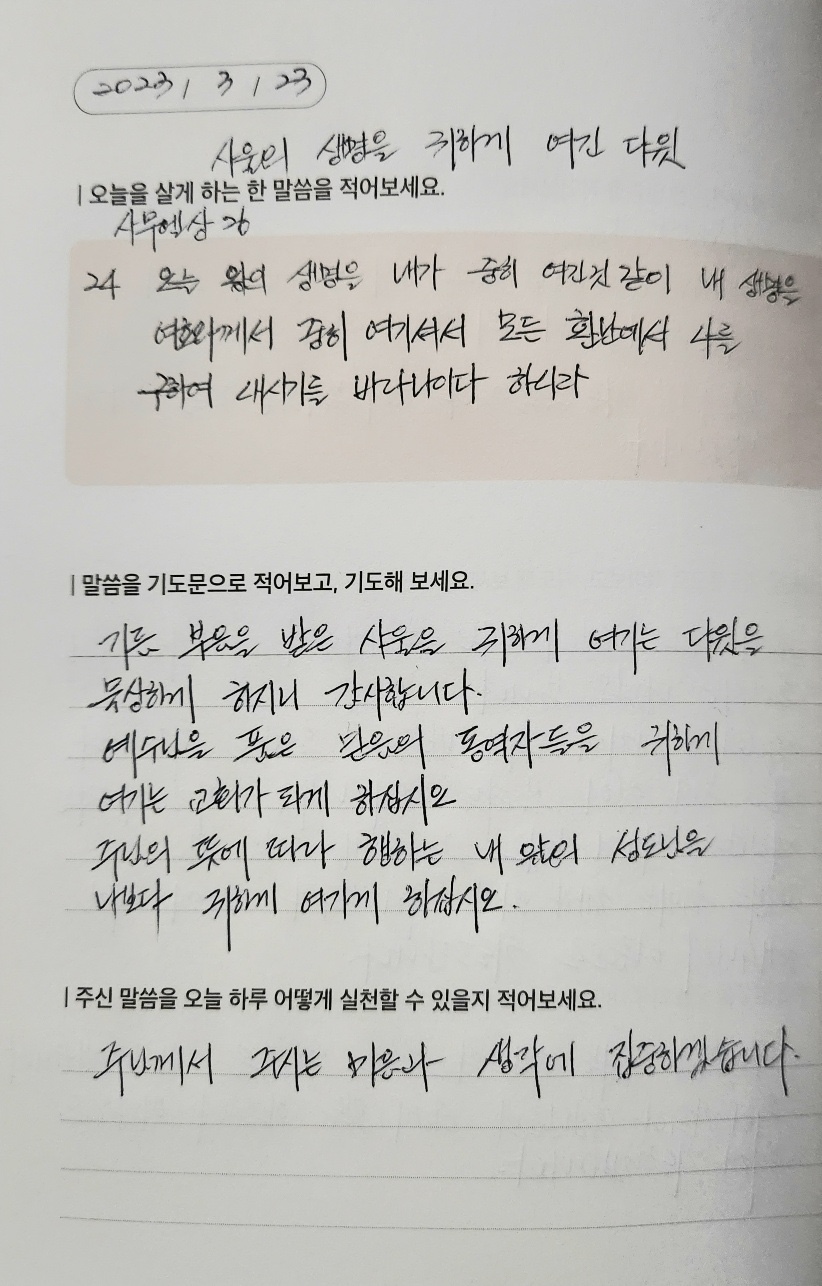 2023 / 3 / 23
사울의 생명을 귀하게 여긴 다윗
| 오늘을 살게 하는 한 말씀을 적어보세요.
사무엘상 26
24 오늘 왕의 생명을 내가 중히 여긴것 같이 내 생명을
여호와께서 중히 여기셔서 모든 환난에서 나를
구하여 내시기를 바라나이다 하니라
| 말씀을 기도문으로 적어보고, 기도해 보세요.
기름 부음을 받은 사울을 귀하게 여기는 다윗을
묵상하게 하지니 감사합니다.
예수님을 품은 믿음의 동역자들을 귀하게
여기는 교회가 되게 하십시오
주님의 뜻에 따라 행하는 내 옆의 성도님을
나보다 귀하게 여기게 하십시오.
| 주신 말씀을 오늘 하루 어떻게 실천할 수 있을지 적어보세요.
주님께서 주시는 마음과 생각에 집중하겠습니다.